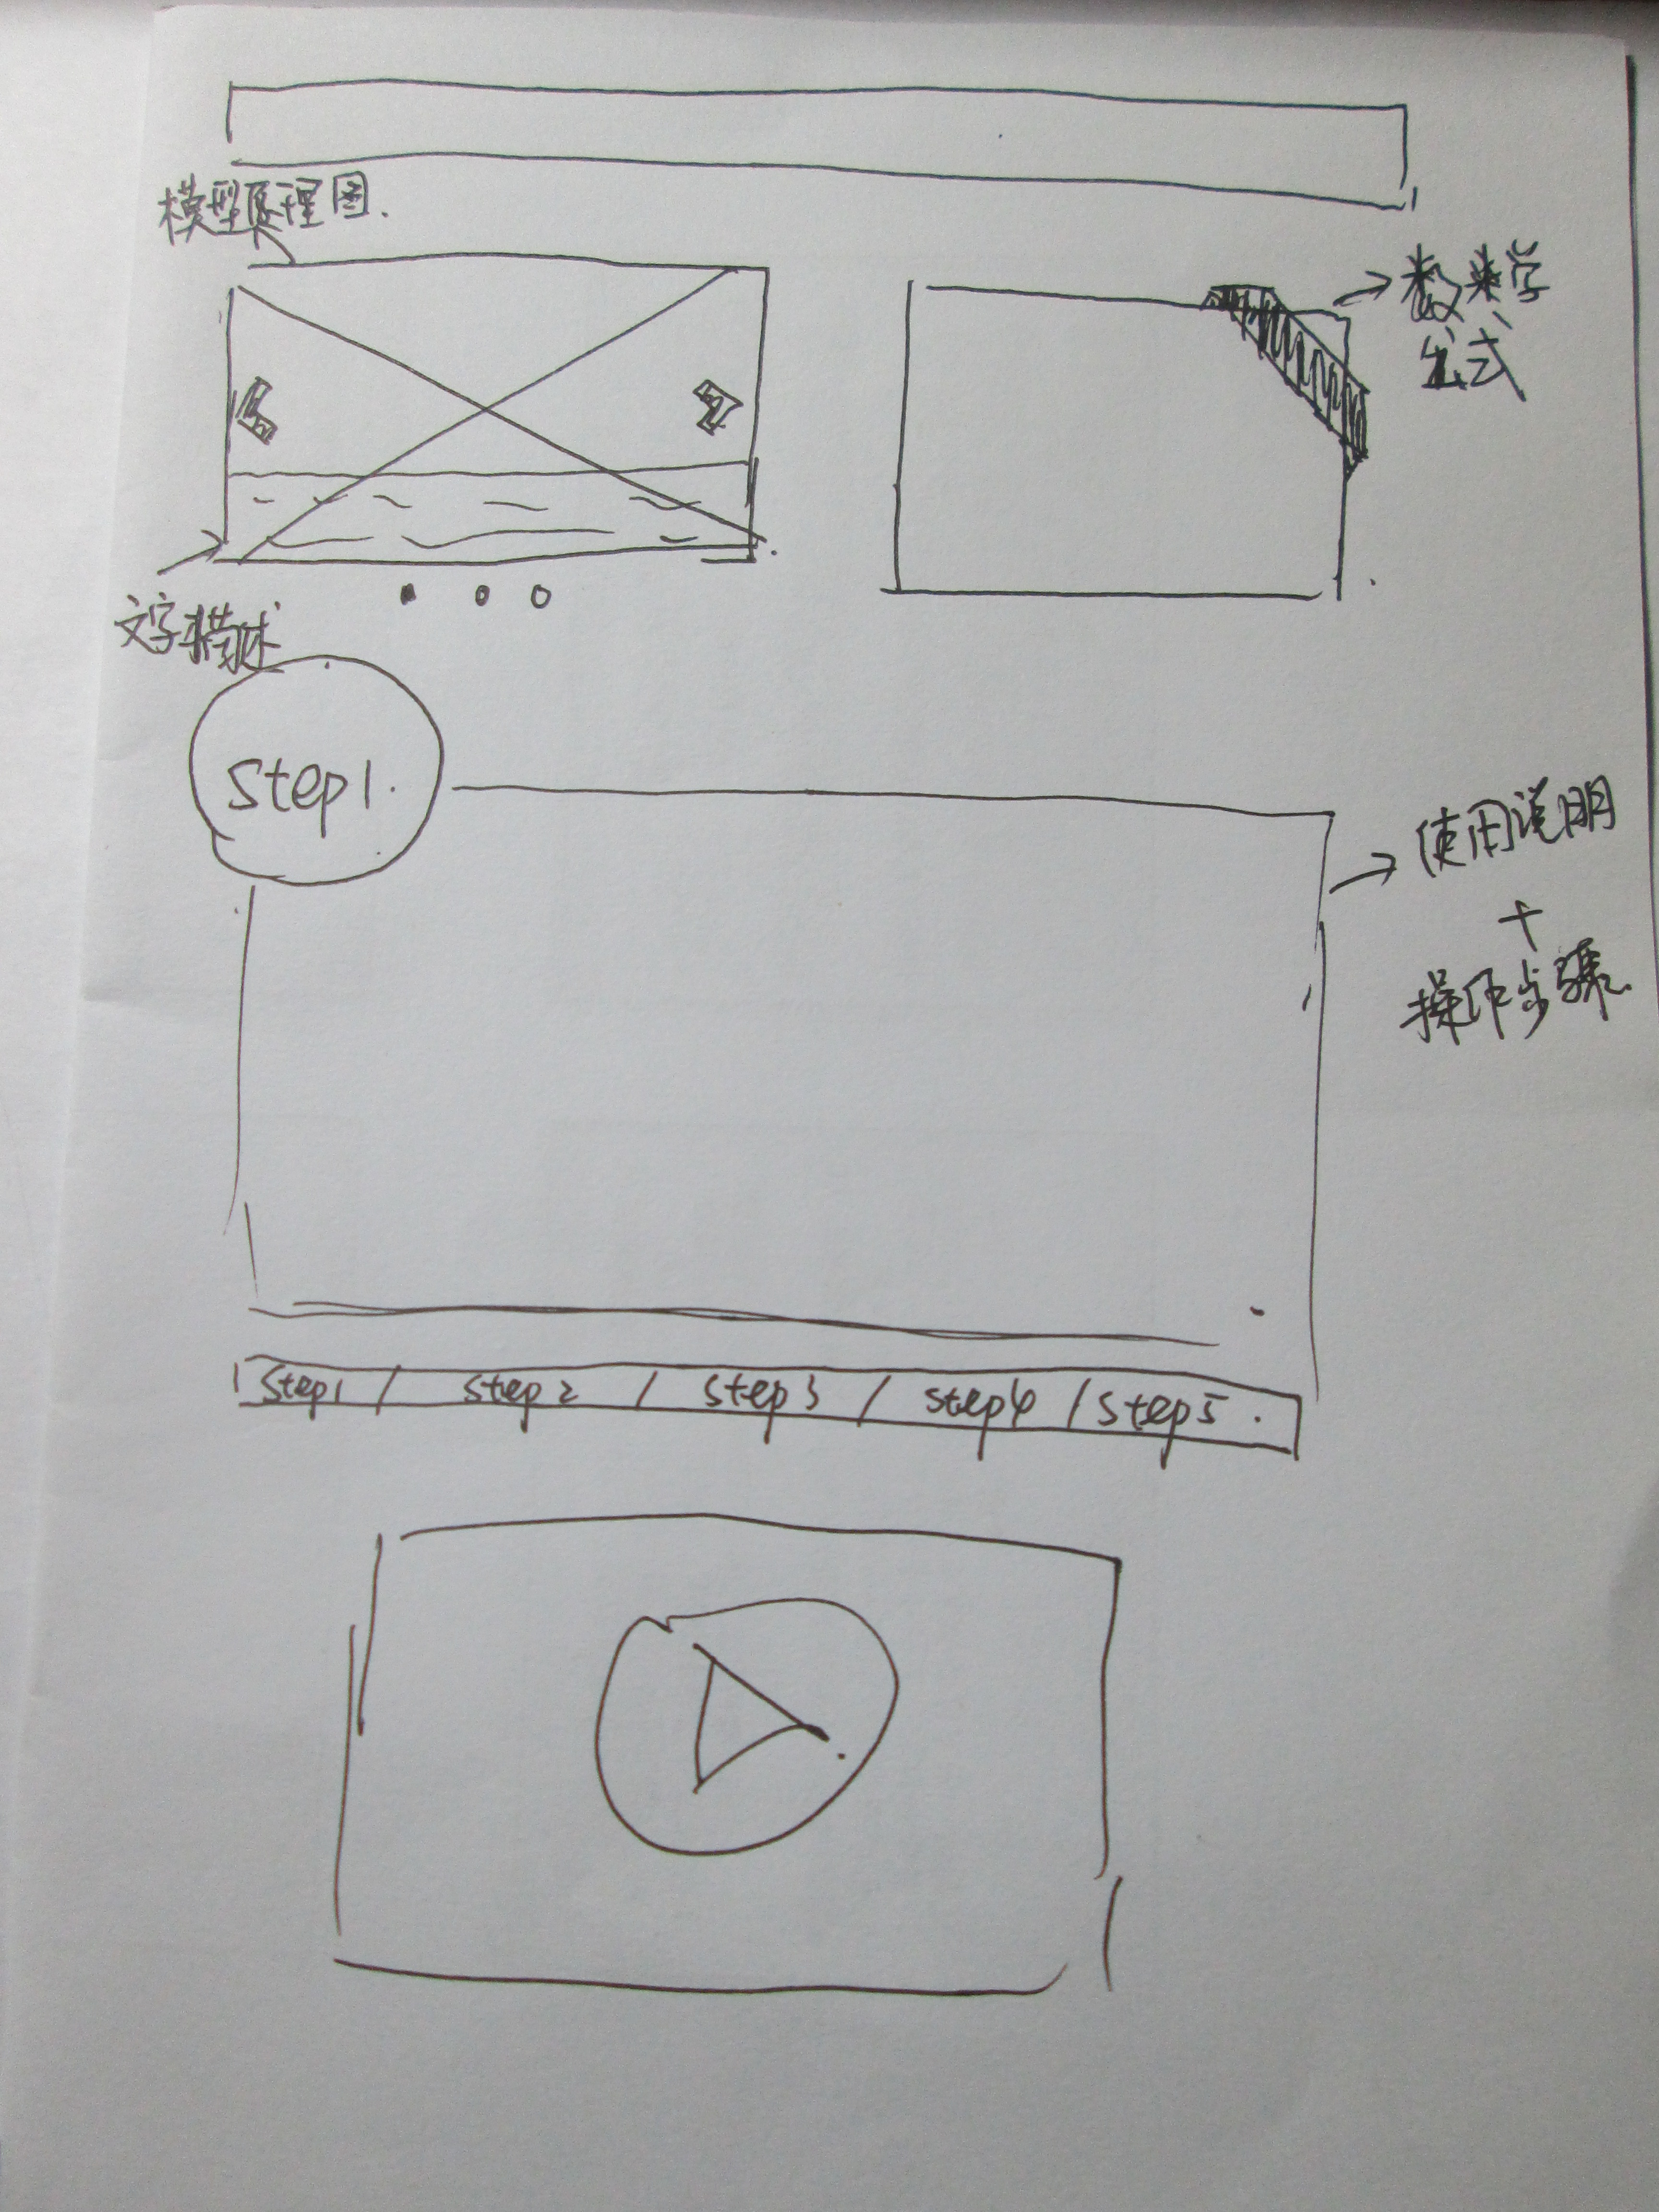 模型原理图.
数学
公式
文字描述
step1.
使用说明
+
操作步骤
step1 / step2 / step3 / step4 / step5.